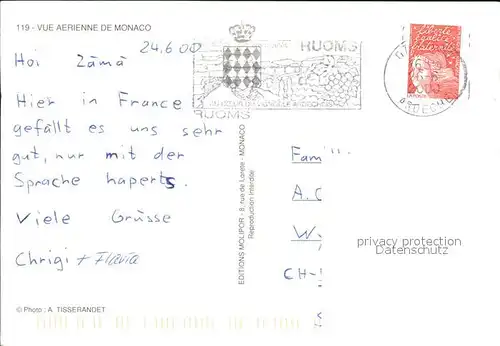 119 - VUE AERIENNE DE MONACO
24.6.00
Hoi Zämä
Hier in France
gefällt es uns sehr
gut, nur mit der
Sprache haperts.
Viele Grüsse
Chrigi + Flavia
© Photo : A. TISSERANDET
EDITIONS MOLIPOR - 9, rue de Lorete - MONACO
Reproduction Interdite
RUOMS
RUOMS
liberté
égalité
fraternité
LA POSTE
ARDECHE
Fam
A. C
W
CH-
S
privacy protection
Datenschutz